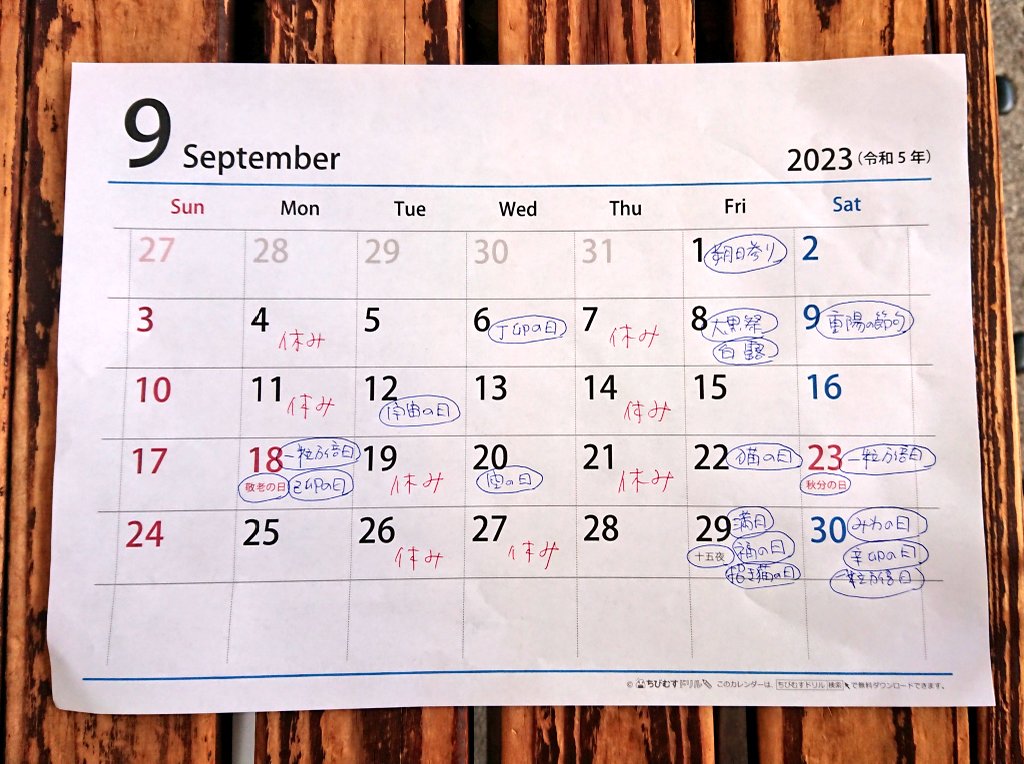 9 September
2023(令和5年)
Sun Mon Tue Wed Thu Fri Sat
27 28 29 30 31 1 朔日参り 2
3 4 休み 5 6 丁卯の日 7 休み 8 9 重陽の節句
白露
10 11 休み 12 宇宙の日 13 14 休み 15 16
17 18 一粒万倍日 19 休み 20 空の日 21 休み 22 猫の日 23 一粒万倍日
敬老の日 己卯の日 秋分の日
24 25 26 休み 27 休み 28 29 満月 30 みわの日
十五夜 福の日 辛卯の日
招き猫の日 一粒万倍日
© ちびむすドリル このカレンダーは、ちびむすドリル 検索 で無料ダウンロードできます。